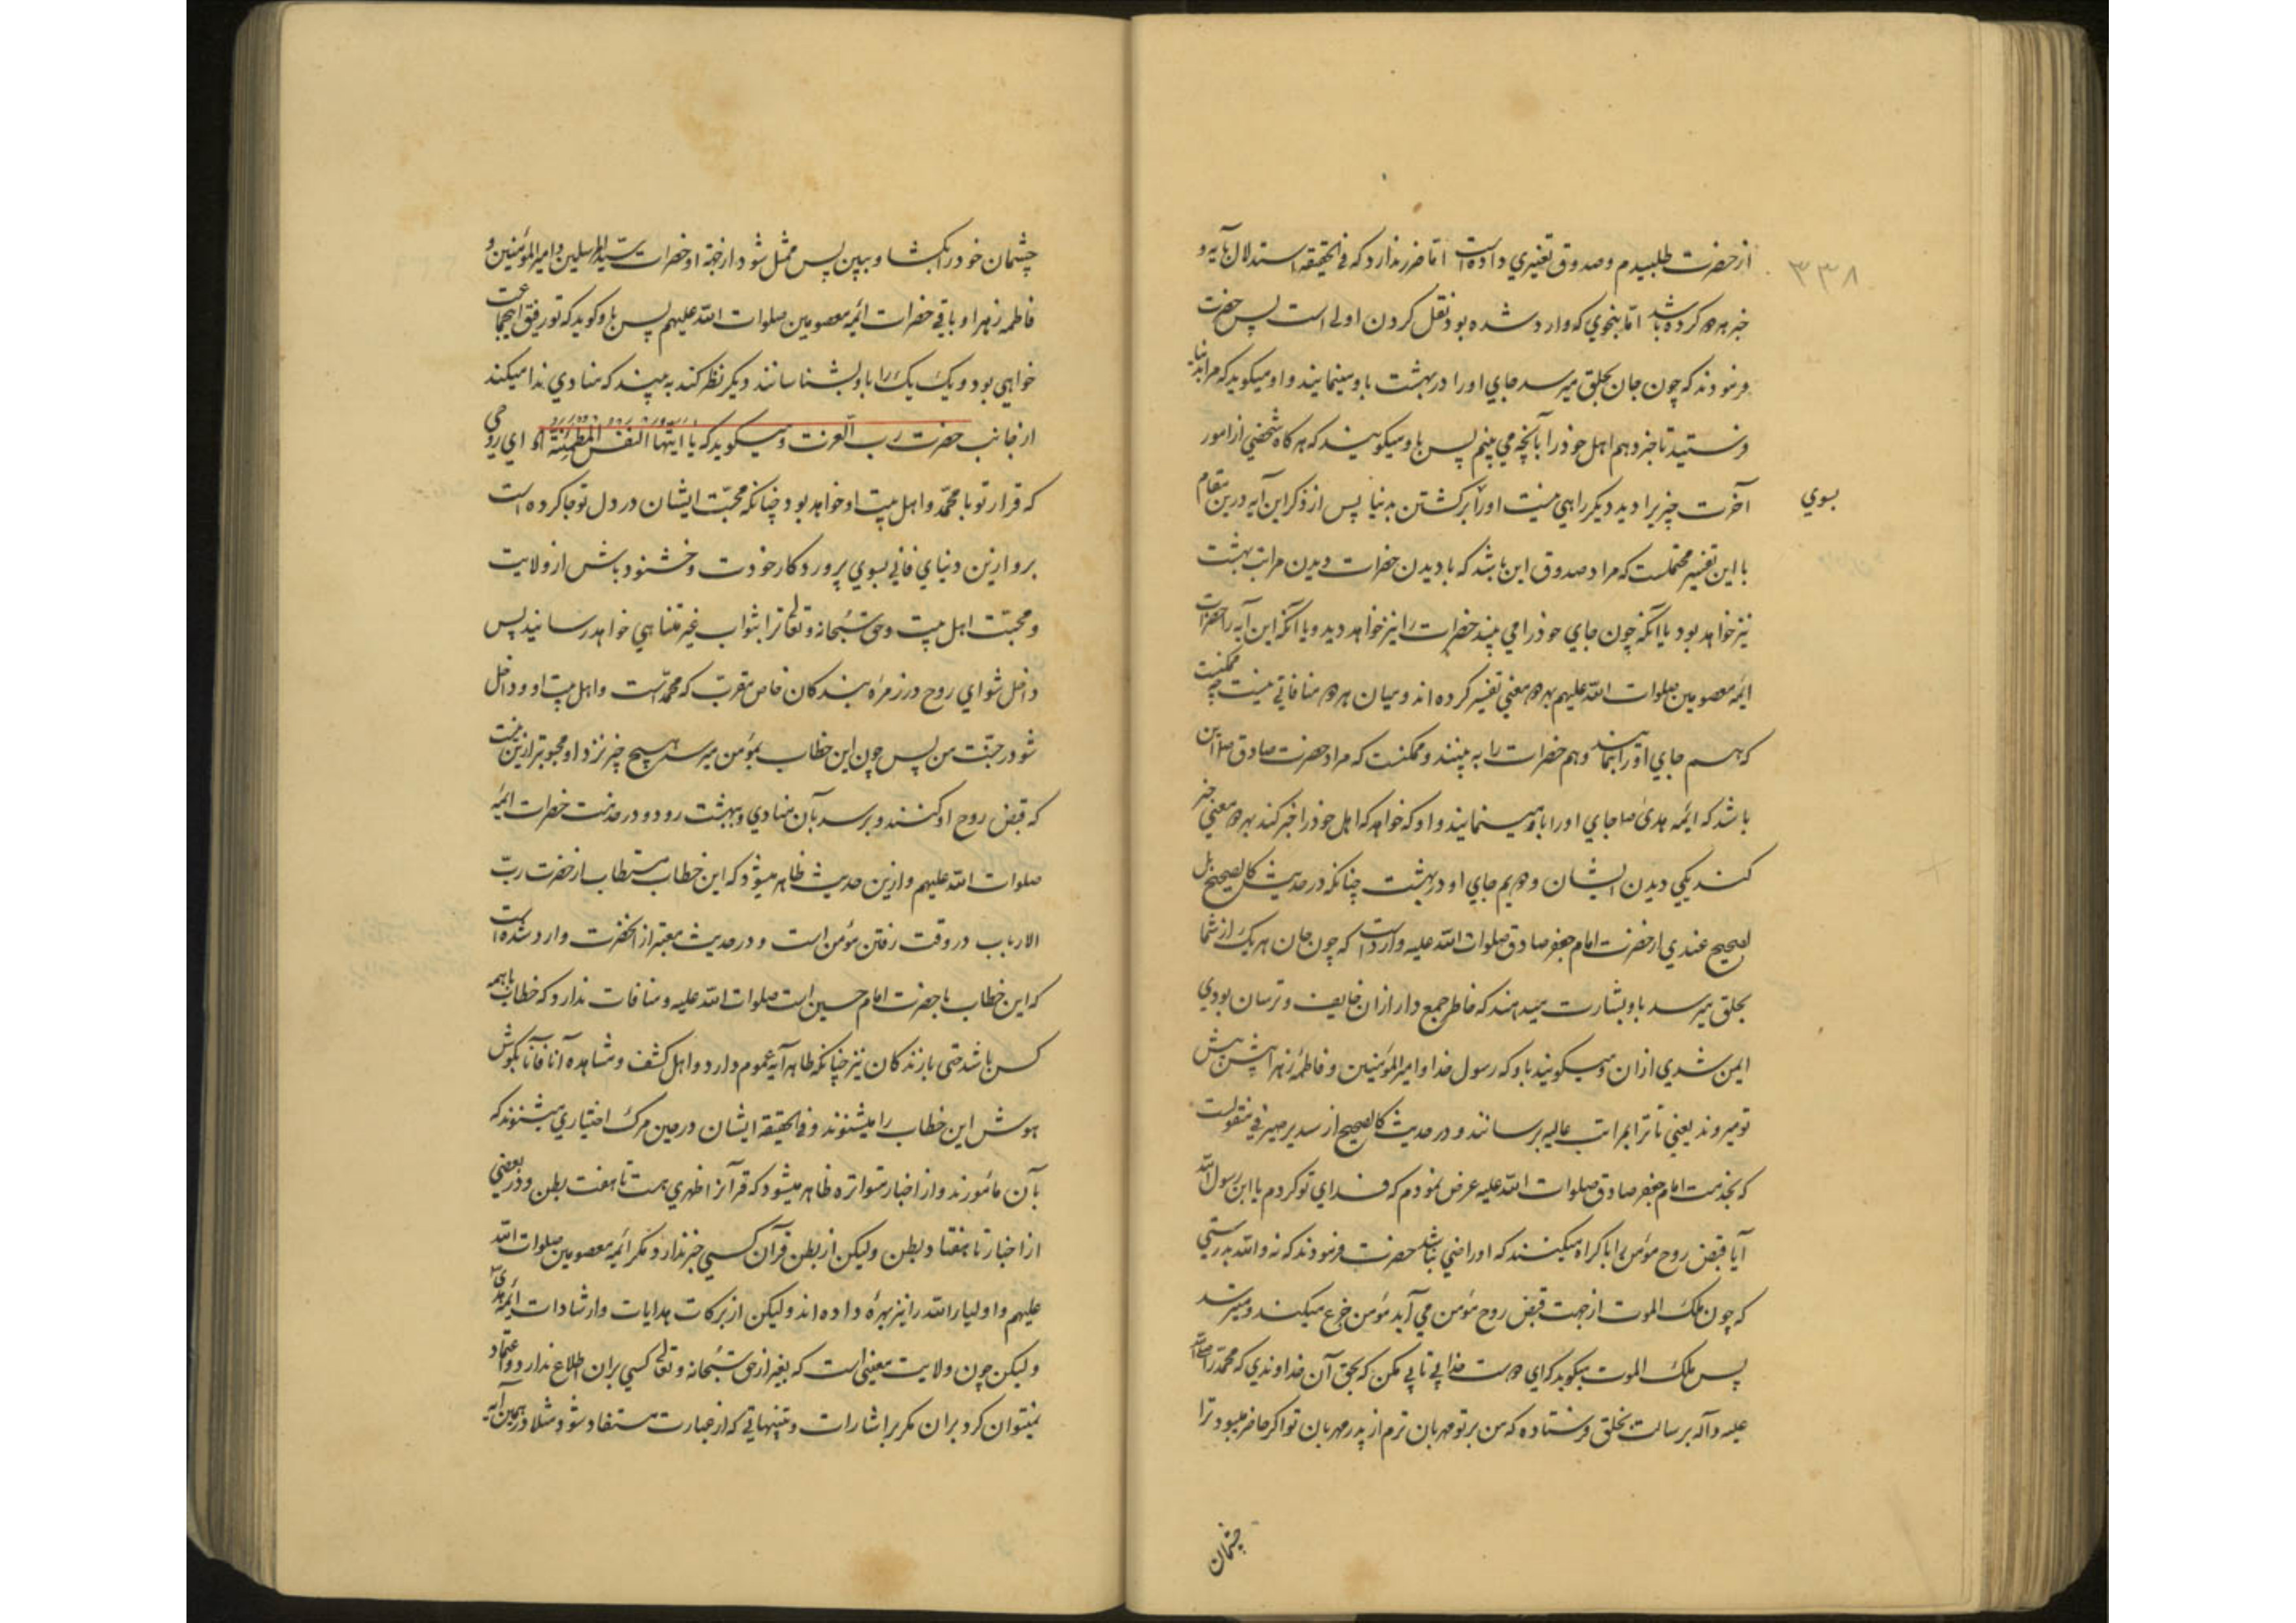 ۳۳۸
از حضرت طلبیدم و صدوق تغییری داده است اما ضرر ندارد که فی الحقیقه استدلال بآیه و
خبر بهر دو کرده باشد اما بنحوی که وارد شده بود نقل کردن اولی است پس حضرت
فرمودند که چون جان بحلق میرسد جای او را در بهشت باو مینمایند و او میکوید که مرا بدنیا
فرستید تا خبر دهم اهل خود را بآنچه می بینم پس باو میکویند که هرکاه شخصی از امور
آخرت چیزیرا دید دیکر راهی نیست او را برکشتن بدنیا پس از ذکر این آیه درین مقام
بسوی
با این تفسیر محتملست که مراد صدوق این باشد که با دیدن حضرات دیدن مراتب بهشت
نیز خواهد بود یا آنکه چون جای خود را می بیند حضرات را نیز خواهد دید و یا آنکه این آیه را حضرات
ائمه معصومین صلوات الله علیهم بهر دو معنی تفسیر کرده اند و میان هر دو منافاتی نیست چه ممکنست
که هم جای او را بنمایند و هم حضرات را به بیند و ممکنست که مراد حضرت صادق ص این
باشد که ائمه هدی ص جای او را باو مینمایند و او که خواهد که اهل خود را خبر کند بهر دو معنی خبر
کند یکی دیدن ایشان و دویم جای او در بهشت چنانکه در حدیث کالصحیح بل
الصحیح عندی از حضرت امام جعفر صادق صلوات الله علیه وارد است که چون جان هر یک از شما
بحلق میرسد باو بشارت میدهند که خاطر جمع دار از آن خایف و ترسان بودی
ایمن شدی از آن و میکویند باو که رسول خدا و امیر المؤمنین و فاطمه زهرا پیش پیش
تو میروند یعنی تا ترا بمراتب عالیه برسانند و در حدیث کالصحیح از سدیر صیرفی منقولست
که بخدمت امام جعفر صادق صلوات الله علیه عرض نمودم که فدای تو کردم یا ابن رسول الله
آیا قبض روح مؤمن را باکراه میکنند که او راضی نباشد حضرت فرمودند که نه والله بدرستی
که چون ملک الموت از جهت قبض روح مؤمن می آید مؤمن جزع میکند و میترسد
پس ملک الموت میکوید که ای دوست خدا بی تابی مکن که بحق آن خداوندی که محمد را صلی الله
علیه و آله برسالت بخلق فرستاده که من بر تو مهربان ترم از پدر مهربان تو اکر حاضر میبود ترا
چشمان
چشمان خود را بکشا و ببین پس ممثل شود از جهة او حضرات سید المرسلین و امیر المؤمنین و
فاطمه زهرا و باقی حضرات ائمه معصومین صلوات الله علیهم پس باو کوید که تو رفیق اینجماعت
خواهی بود و یک یک را باو بشناسانند دیکر نظر کند به بیند که منادی ندا میکند
از جانب حضرت رب العزت و میکوید که یا ایتها النفس المطمئنة ای روحی
که قرار تو با محمد و اهل بیت او خواهد بود چنانکه محبت ایشان در دل تو جا کرده است
برو ازین دنیای فانی بسوی پروردکار خودت و خشنود باش از ولایت
و محبت اهل بیت و حق سبحانه و تعالی ترا بثواب غیر متناهی خواهد رسانید پس
داخل شو ای روح در زمره بندکان خاص مقرب که محمد است و اهل بیت او و داخل
شو در جنت من پس چون این خطاب بمؤمن میرسد هیچ چیز نزد او محبوبتر ازین نیست
که قبض روح او کنند و برسد بآن منادی و ببهشت رود و در خدمت حضرات ائمه
صلوات الله علیهم و ازین حدیث ظاهر میشود که این خطاب مستطاب از حضرت رب
الارباب در وقت رفتن مؤمن است و در حدیث معتبر از آنحضرت وارد شده است
که این خطاب با حضرت امام حسین است صلوات الله علیه و منافات ندارد که خطاب با همه
کس باشد حتی با زندکان نیز چنانکه ظاهر آیه عموم دارد و اهل کشف و مشاهده آنا فآنا بکوش
هوش این خطاب را میشنوند و فی الحقیقه ایشان در حین مرک اختیاری میشنوند که
بآن مأمورند و از اخبار متواتره ظاهر میشود که قرآنرا ظهری هست تا هفت بطن و در بعضی
از اخبار تا هفتاد بطن ولیکن از بطن قرآن کسی خبر ندارد مکر ائمه معصومین صلوات الله
علیهم و اولیاء الله را نیز بهرهٔ داده اند ولیکن از برکات هدایات و ارشادات ائمه هدی
ولیکن چون ولایت معنی است که بغیر از حق سبحانه و تعالی کسی بران اطلاع ندارد و اعتماد
نمیتوان کرد بران مکر بر اشارات و تنبیهاتی که از عبارت مستفاد شود و مثلا در همین آیه